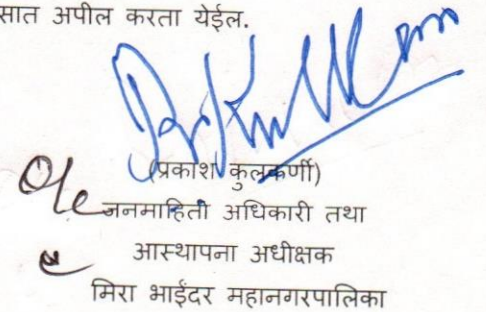 सात अपील करता येईल.
(प्रकाश कुलकर्णी)
जनमाहिती अधिकारी तथा
आस्थापना अधीक्षक
मिरा भाईंदर महानगरपालिका